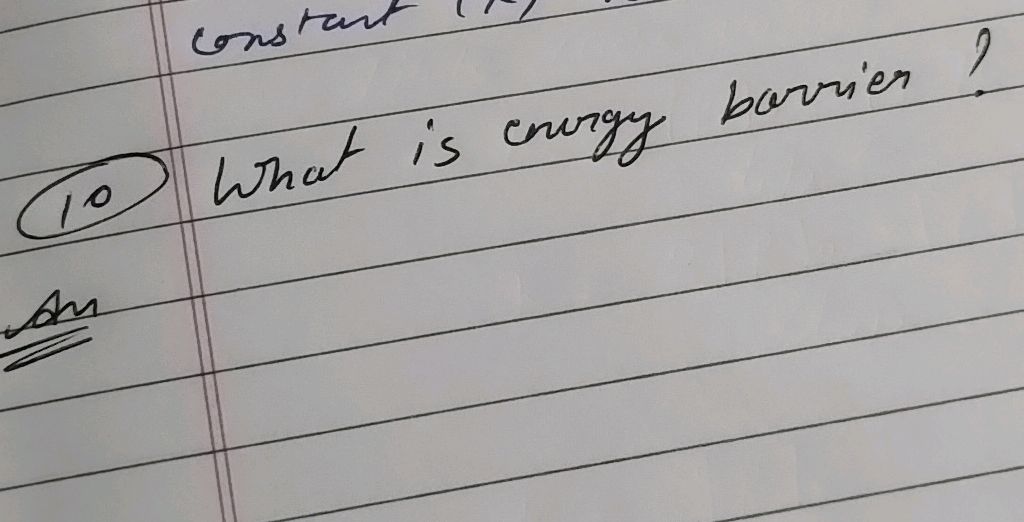 constant (K)
10 What is energy barrier ?
Ans